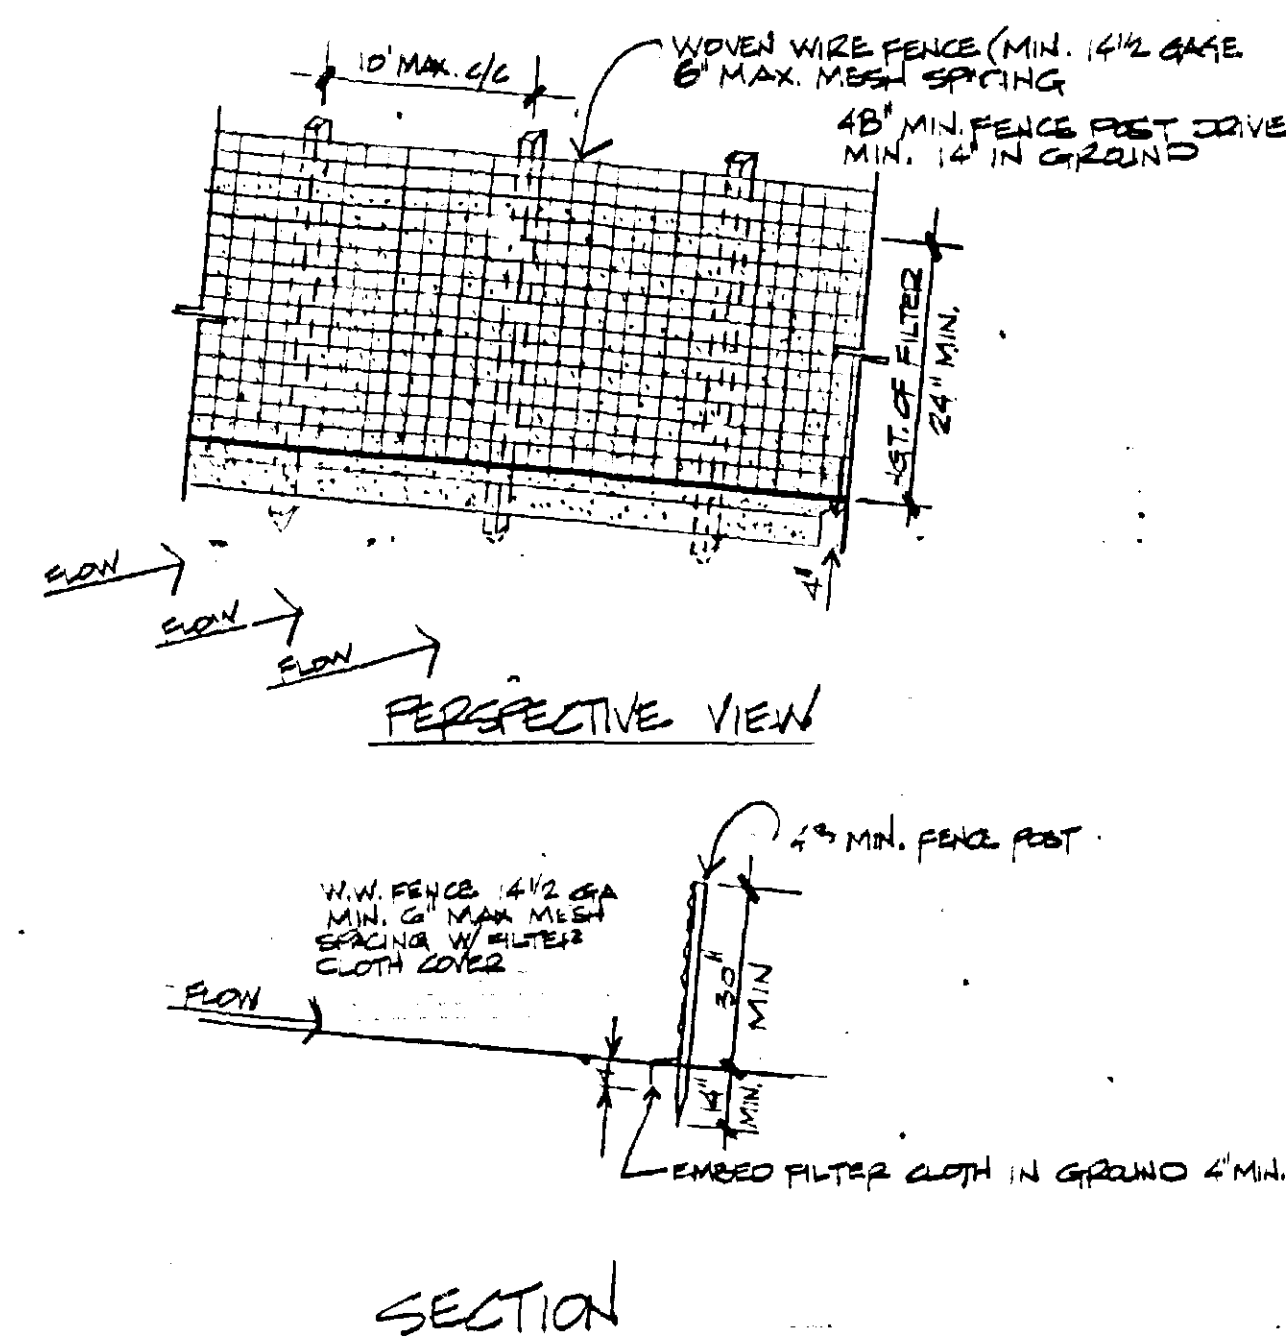 10' MAX. C/C
WOVEN WIRE FENCE (MIN. 14 1/2 GAGE
6" MAX. MESH SPACING
48" MIN. FENCE POST DRIVE
MIN. 14" IN GROUND
HGT. OF FILTER
24" MIN.
4"
FLOW
FLOW
FLOW
PERSPECTIVE VIEW
MIN. FENCE POST
W.W. FENCE 14 1/2 GA
MIN. 6" MAX MESH
SPACING W/ FILTER
CLOTH COVER
FLOW
30"
MIN
4
14"
MIN.
EMBED FILTER CLOTH IN GROUND 4" MIN.
SECTION